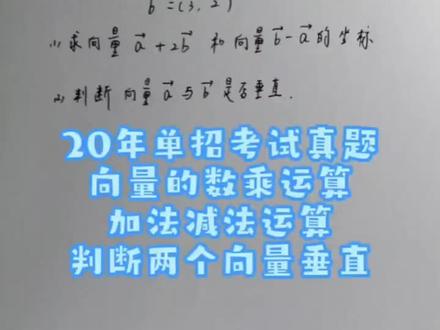 b⃗ =(3, 2)
(1) 求向量 a⃗ + 2b⃗ 和向量 b⃗ - a⃗ 的坐标
(2) 判断向量 a⃗ 与 b⃗ 是否垂直.
20年单招考试真题
向量的数乘运算
加法减法运算
判断两个向量垂直